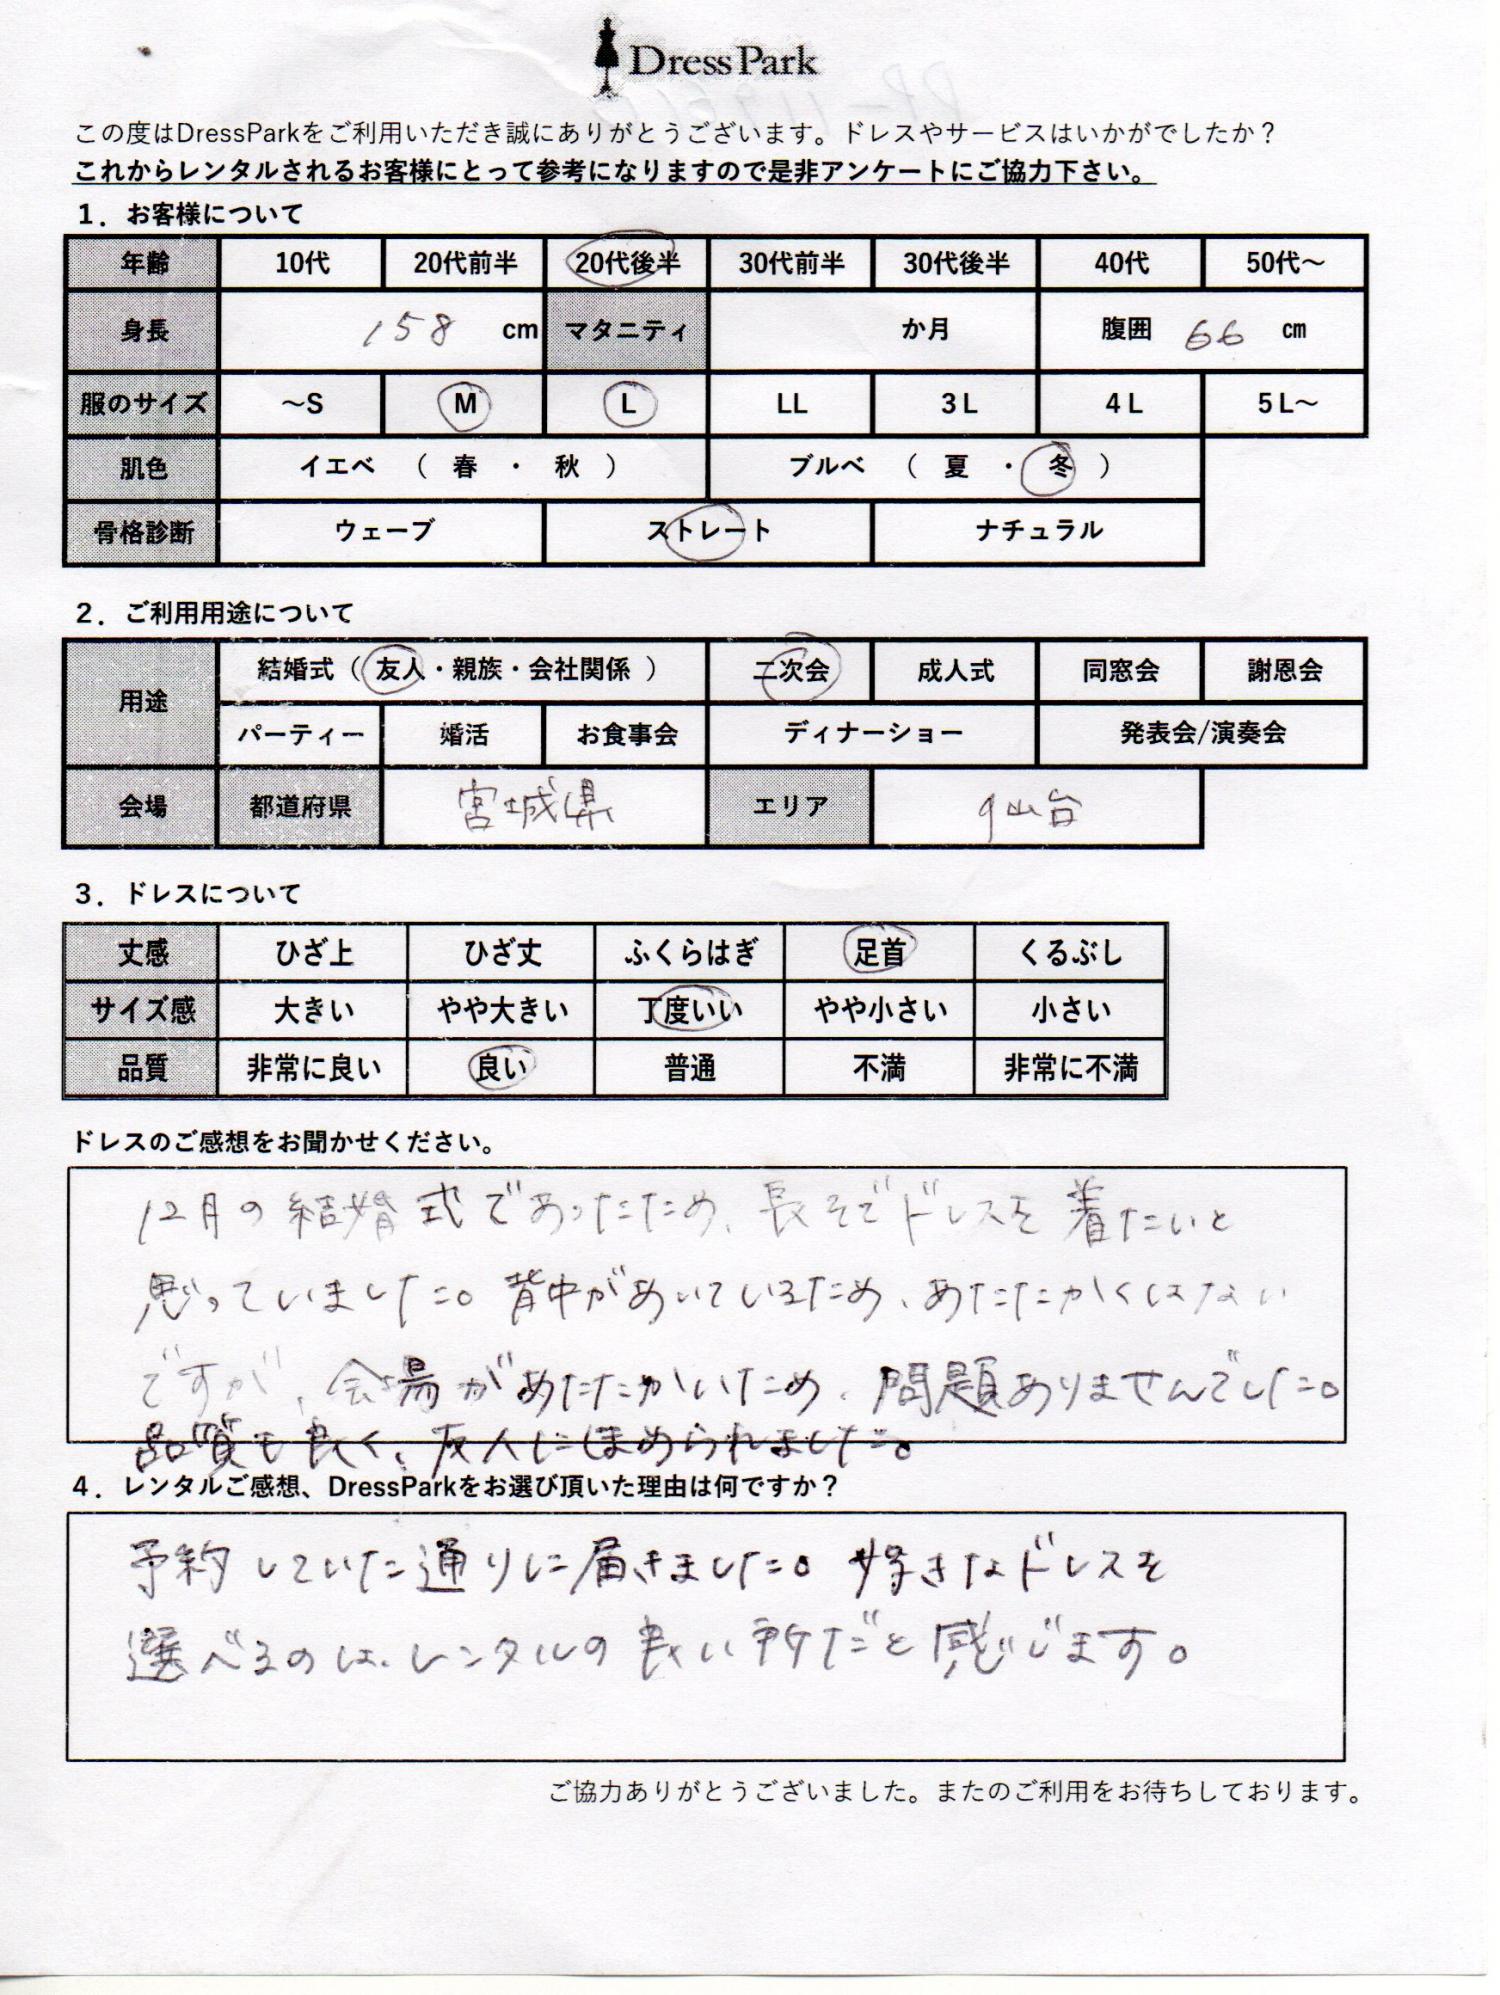 DressPark
この度はDressParkをご利用いただき誠にありがとうございます。ドレスやサービスはいかがでしたか？
これからレンタルされるお客様にとって参考になりますので是非アンケートにご協力下さい。
1．お客様について
年齢 10代 20代前半 20代後半 30代前半 30代後半 40代 50代～
身長 158 cm マタニティ か月 腹囲 66 cm
服のサイズ ～S M L LL 3L 4L 5L～
肌色 イエベ （ 春 ・ 秋 ） ブルベ （ 夏 ・ 冬 ）
骨格診断 ウェーブ ストレート ナチュラル
2．ご利用用途について
用途 結婚式（ 友人・親族・会社関係 ） 二次会 成人式 同窓会 謝恩会
パーティー 婚活 お食事会 ディナーショー 発表会/演奏会
会場 都道府県 宮城県 エリア 仙台
3．ドレスについて
丈感 ひざ上 ひざ丈 ふくらはぎ 足首 くるぶし
サイズ感 大きい やや大きい 丁度いい やや小さい 小さい
品質 非常に良い 良い 普通 不満 非常に不満
ドレスのご感想をお聞かせください。
12月の結婚式であったため、長そでドレスを着たいと
思っていました。背中があいているため、あたたかくはない
ですが、会場があたたかいため、問題ありませんでした。
品質も良く、友人にほめられました。
4．レンタルご感想、DressParkをお選び頂いた理由は何ですか？
予約していた通りに届きました。好きなドレスを
選べるのは、レンタルの良い所だと感じます。
ご協力ありがとうございました。またのご利用をお待ちしております。